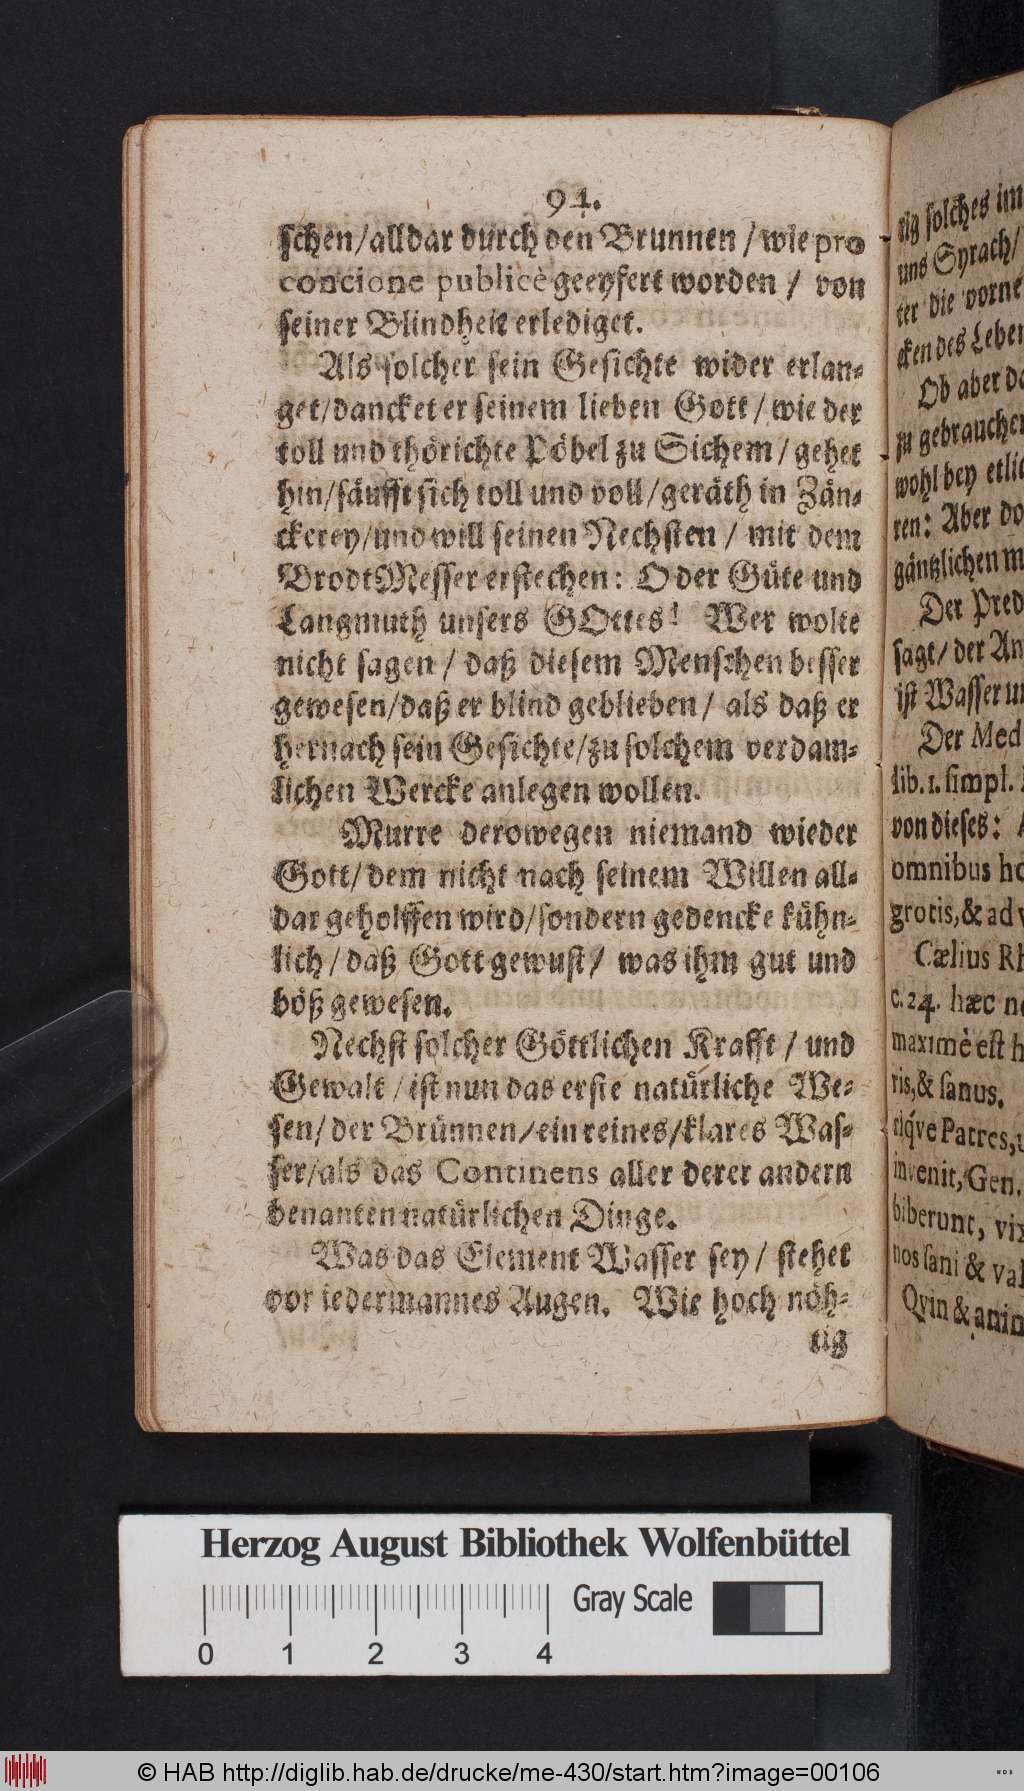 94.
schen/alldar durch den Brunnen / wie pro
concione publicè geeyfert worden / von
seiner Blindheit erlediget.
Als solcher sein Gesichte wider erlan-
get/dancket er seinem lieben Gott / wie der
toll und thörichte Pöbel zu Sichem / gehet
hin/säufft sich toll und voll/geräth in Zän-
ckerey/und will seinen Nechsten / mit dem
BrodtMesser erstechen: O der Güte und
Langmuth unsers GOttes! Wer wolte
nicht sagen / daß diesem Menschen besser
gewesen/daß er blind geblieben / als daß er
hernach sein Gesichte/zu solchem verdam-
lichen Wercke anlegen wollen.
Murre derowegen niemand wieder
Gott/dem nicht nach seinem Willen all-
dar geholffen wird/sondern gedencke kühn-
lich/daß Gott gewust/ was ihm gut und
böß gewesen.
Nechst solcher Göttlichen Krafft / und
Gewalt / ist nun das erste natürliche We-
sen/der Brünnen/ein reines/klares Was-
ser/als das Continens aller derer andern
benanten natürlichen Dinge.
Was das Element Wasser sey/ stehet
vor iedermannes Augen. Wie hoch nöh-
tig
tig solches im
uns Syrach/
ter die vorne
cken des Leben
Ob aber da
zu gebrauchen
wohl bey etlic
ren: Aber do
gäntzlichen m
Der Pred
sagt/der An
ist Wasser un
Der Med
lib. 1. simpl.
von dieses: A
omnibus ho
grotis,& ad v
Cælius Rh
c. 24. hæc ne
maximè est h
ris,& sanus.
riq́ve Patres,
invenit, Gen.
biberunt, vix
nos sani & val
Qvin & anim
Herzog August Bibliothek Wolfenbüttel
0 1 2 3 4 Gray Scale
© HAB http://diglib.hab.de/drucke/me-430/start.htm?image=00106